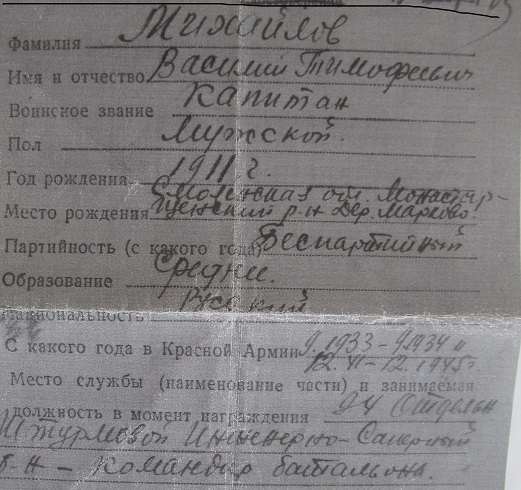 Фамилия Михайлов
Имя и отчество Василий Тимофеевич
Воинское звание Капитан
Пол Мужской.
Год рождения 1911 г.
Смоленская обл. Монастыр-
Место рождения щенский р-н Дер. Марково.
Партийность (с какого года) Беспартийный
Образование Средне.
Национальность Русский
С какого года в Красной Армии 9.1933-9.1934 и
12.41-12.1945г.
Место службы (наименование части) и занимаемая
должность в момент награждения 24 Отдельн
Штурмовой Инженерно-Саперный
б-н - Командир батальона.